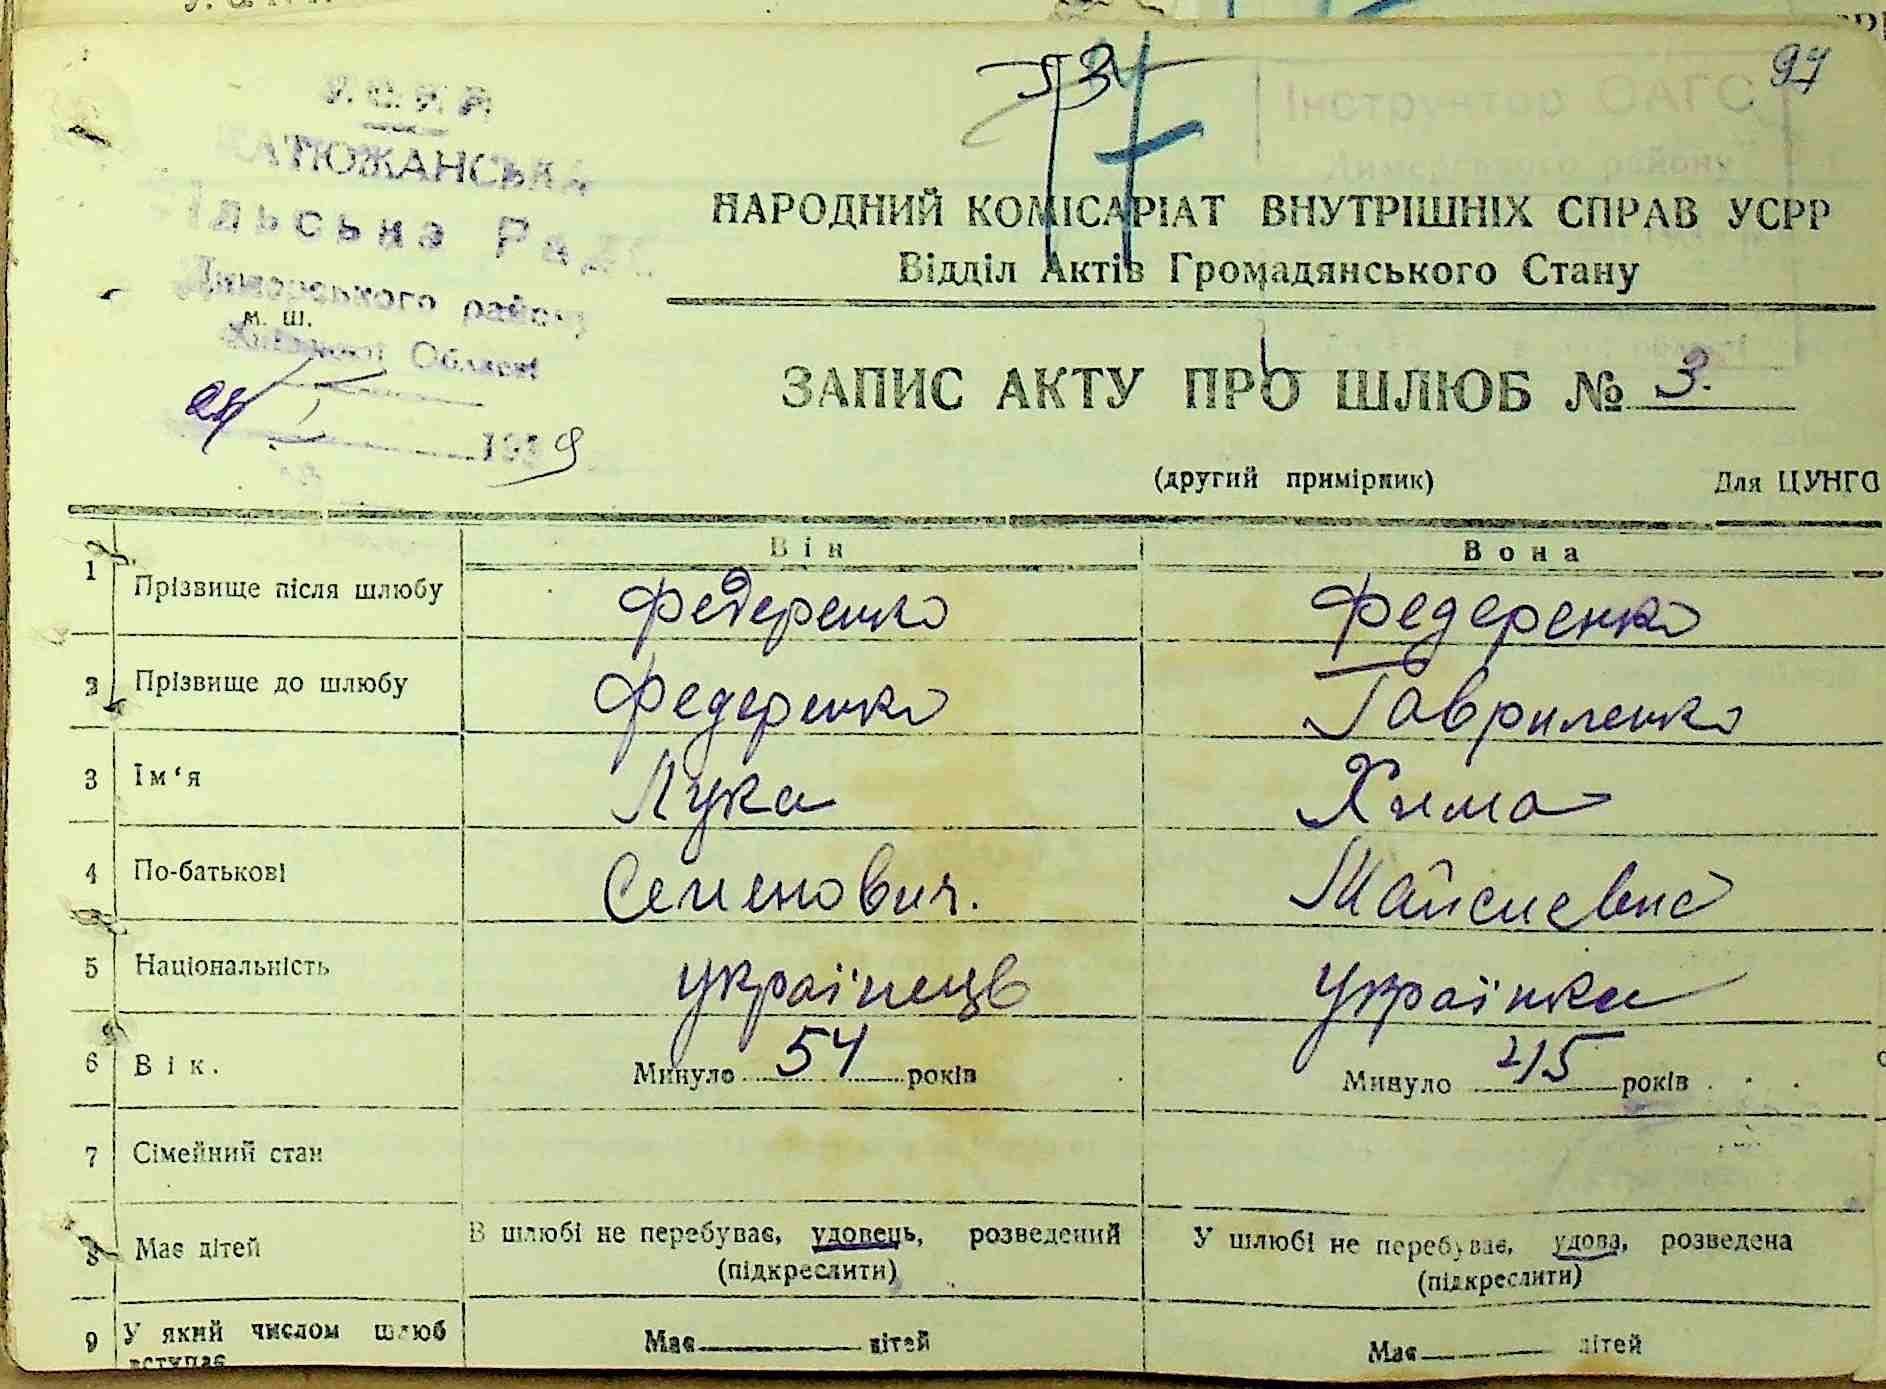 53
97
УСРР
КАТЮЖАНСЬКА
Сільська Рада
Димерського району
м. ш.
Київської Області
24/I 1939
Інструктор ОАГС
Димерського району
НАРОДНИЙ КОМІСАРІАТ ВНУТРІШНІХ СПРАВ УСРР
Відділ Актів Громадянського Стану
ЗАПИС АКТУ ПРО ШЛЮБ № 3.
(другий примірник) Для ЦУНГО
Він Вона
1 Прізвище після шлюбу Федеренко Федеренко
2 Прізвище до шлюбу Федеренко Гавриленко
3 Ім‘я Лука Хима
4 По-батькові Семенович. Майсиевна
5 Національність українець українка
6 Вік. Минуло 54 років Минуло 45 років
7 Сімейний стан
8 Має дітей В шлюбі не перебуває, удовець, розведений У шлюбі не перебуває, удова, розведена
(підкреслити) (підкреслити)
9 У який числом шлюб вступає Має дітей Має дітей